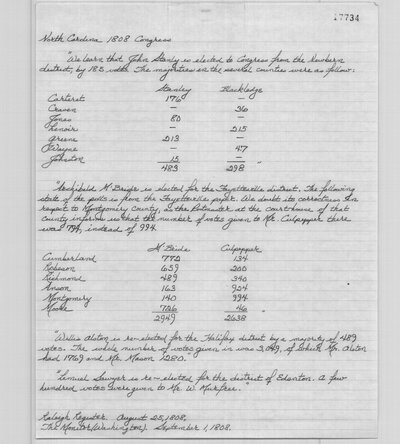 17734
North Carolina 1808 Congress
"We learn that John Stanly is elected to Congress from the Newbern
district, by 185 votes. The majorities in the several counties were as follow:
Stanley Blackledge
Carteret 176 —
Craven — 36
Jones 80 —
Lenoir — 215
Greene 213 —
Wayne — 47
Johnston 15 — "
483 298
"Archibald M'Bride is elected for the Fayetteville district. The following
state of the polls is from the Fayetteville paper. We doubt its correctness in
respect to Montgomery County, as the Postmaster at the court-house of that
county informs us that the number of votes given to Mr. Culpepper there
was 794, instead of 994.
M'Bride Culpepper
Cumberland 772 134
Robeson 659 200
Richmond 489 340
Anson 163 924
Montgomery 140 994
Moore 726 46 "
2949 2638
"Willis Alston is re-elected for the Halifax district by a majority of 489
votes. The whole number of votes given in was 3,049, of which Mr. Alston
had 1769 and Mr. Mason 1280."
"Lemuel Sawyer is re-elected for the district of Edenton. A few
hundred votes were given to Mr. W. Murfree."
Raleigh Register. August 25, 1808.
The Monitor (Washington). September 1, 1808.